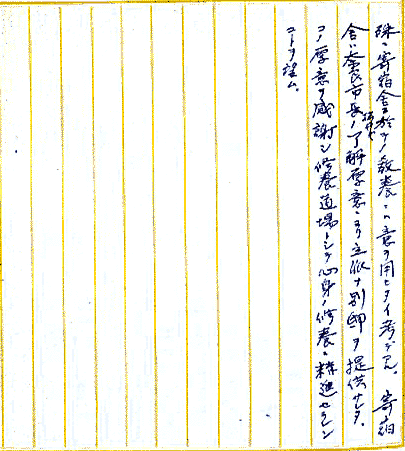 殊ニ寄宿舎ニ於テノ教養ニハ意ヲ用ヒタイ考デアル。寄宿
舎ハ奈良市長ノ了解厚意ニヨリ立派ナ別邸ヲ提供サレタ。
コノ厚意ヲ感謝シ修養道場トシテ心身ノ修養ニ精進セラレン
コトヲ望ム。